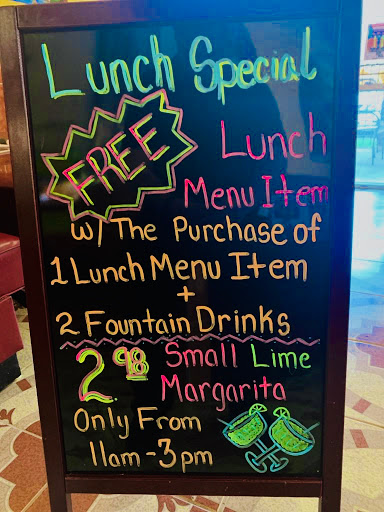 Lunch Special
FREE
Lunch
Menu Item
w/ The Purchase of
1 Lunch Menu Item
+
2 Fountain Drinks
2.98 Small Lime
Margarita
Only From
11am - 3pm